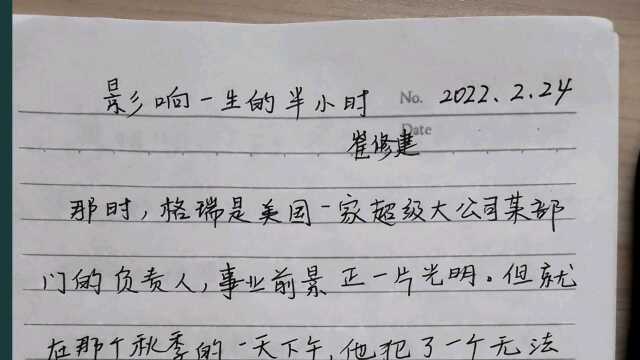 影响一生的半小时 No. 2022.2.24
Date
崔修建
那时，格瑞是美国一家超级大公司某部
门的负责人，事业前景正一片光明。但就
在那个秋季的一天下午，他犯了一个无法